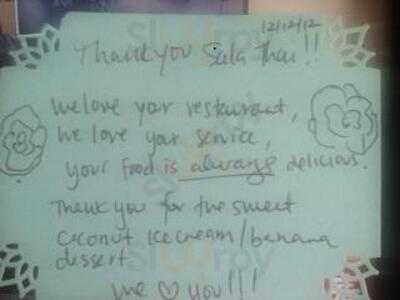 12/12/12
Thank you Sala Thai!!
We love your restaurant,
We love your service,
your food is always delicious.
Thank you for the sweet
coconut ice cream/banana
dessert
We ♡ you!!!